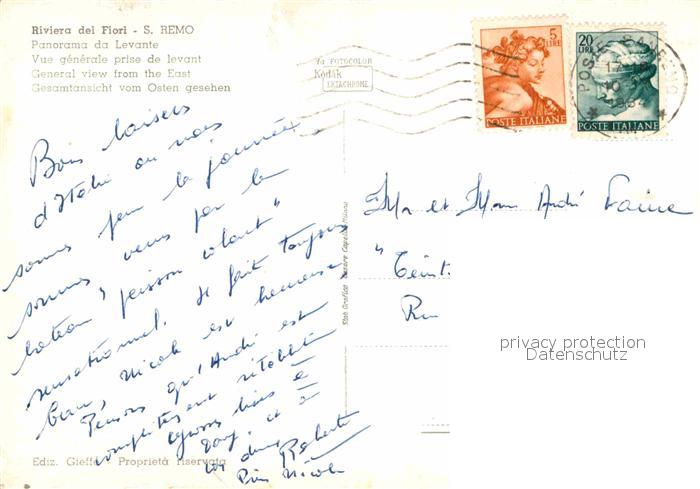 Riviera dei Fiori - S. REMO
Panorama da Levante
Vue générale prise de levant
General view from the East
Gesamtansicht vom Osten gesehen
da FOTOCOLOR
Kodak
EKTACHROME
5
LIRE
POSTE ITALIANE
20
LIRE
POSTE ITALIANE
Bons baisers
d'Italie où nous
sommes pour la journée
sommes venus par le
bateau "poisson volant"
sensationnel. Il fait toujours
beau, Nicole est heureuse
Pensons qu'André est
complètement rétabli
grosses bises à
et à
Roberte
Nicole
Mr et Mme André
"
privacy protection
Datenschutz
Ediz. Gieffe - Proprietà riservata